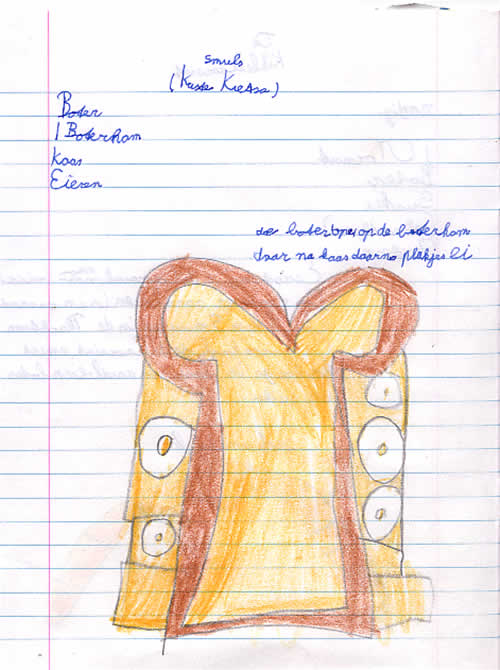 smuls
(Kusde Kietsa)
Boter
1 Boterham
Kaas
Eieren
doe boter op de boterham
daar na kaas daarna plakjes ei